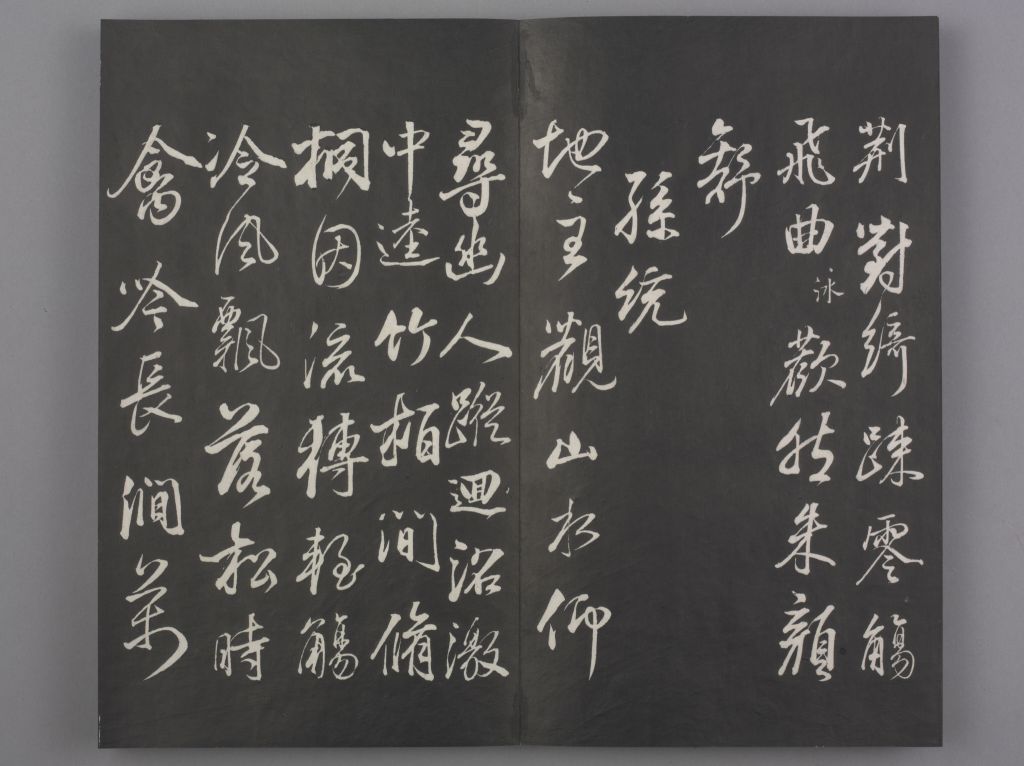 荊對綺踈零觴
飛曲泳歡然朱顏
舒
孫統
地主觀山水仰
尋幽人蹤迴沼激
中逵竹柏澗脩
桐因流轉輕觴
冷風飄落松時
禽吟長澗萬